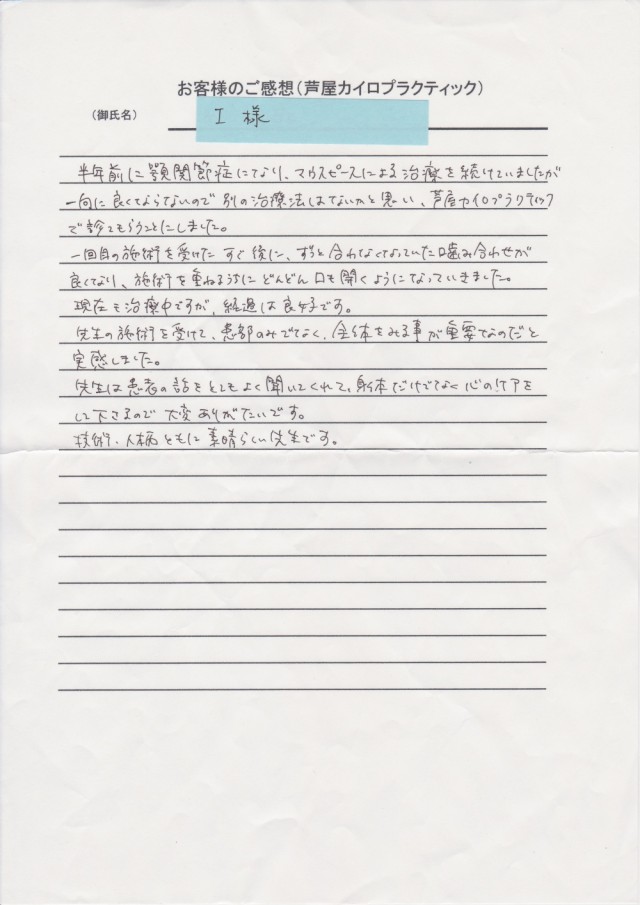 お客様のご感想(芦屋カイロプラクティック)
(御氏名)
I 様
半年前に顎関節症になり、マウスピースによる治療を続けていましたが
一向に良くならないので別の治療法はないかと思い、芦屋カイロプラクティック
で診てもらうことにしました。
一回目の施術を受けたすぐ後に、ずっと合わなくなっていた噛み合わせが
良くなり、施術を重ねるうちにどんどん口も開くようになっていきました。
現在も治療中ですが、経過は良好です。
先生の施術を受けて、患部のみでなく、全体をみる事が重要なのだと
実感しました。
先生は患者の話をとてもよく聞いてくれて、身体だけでなく心のケアを
して下さるので大変ありがたいです。
技術・人柄ともに素晴らしい先生です。